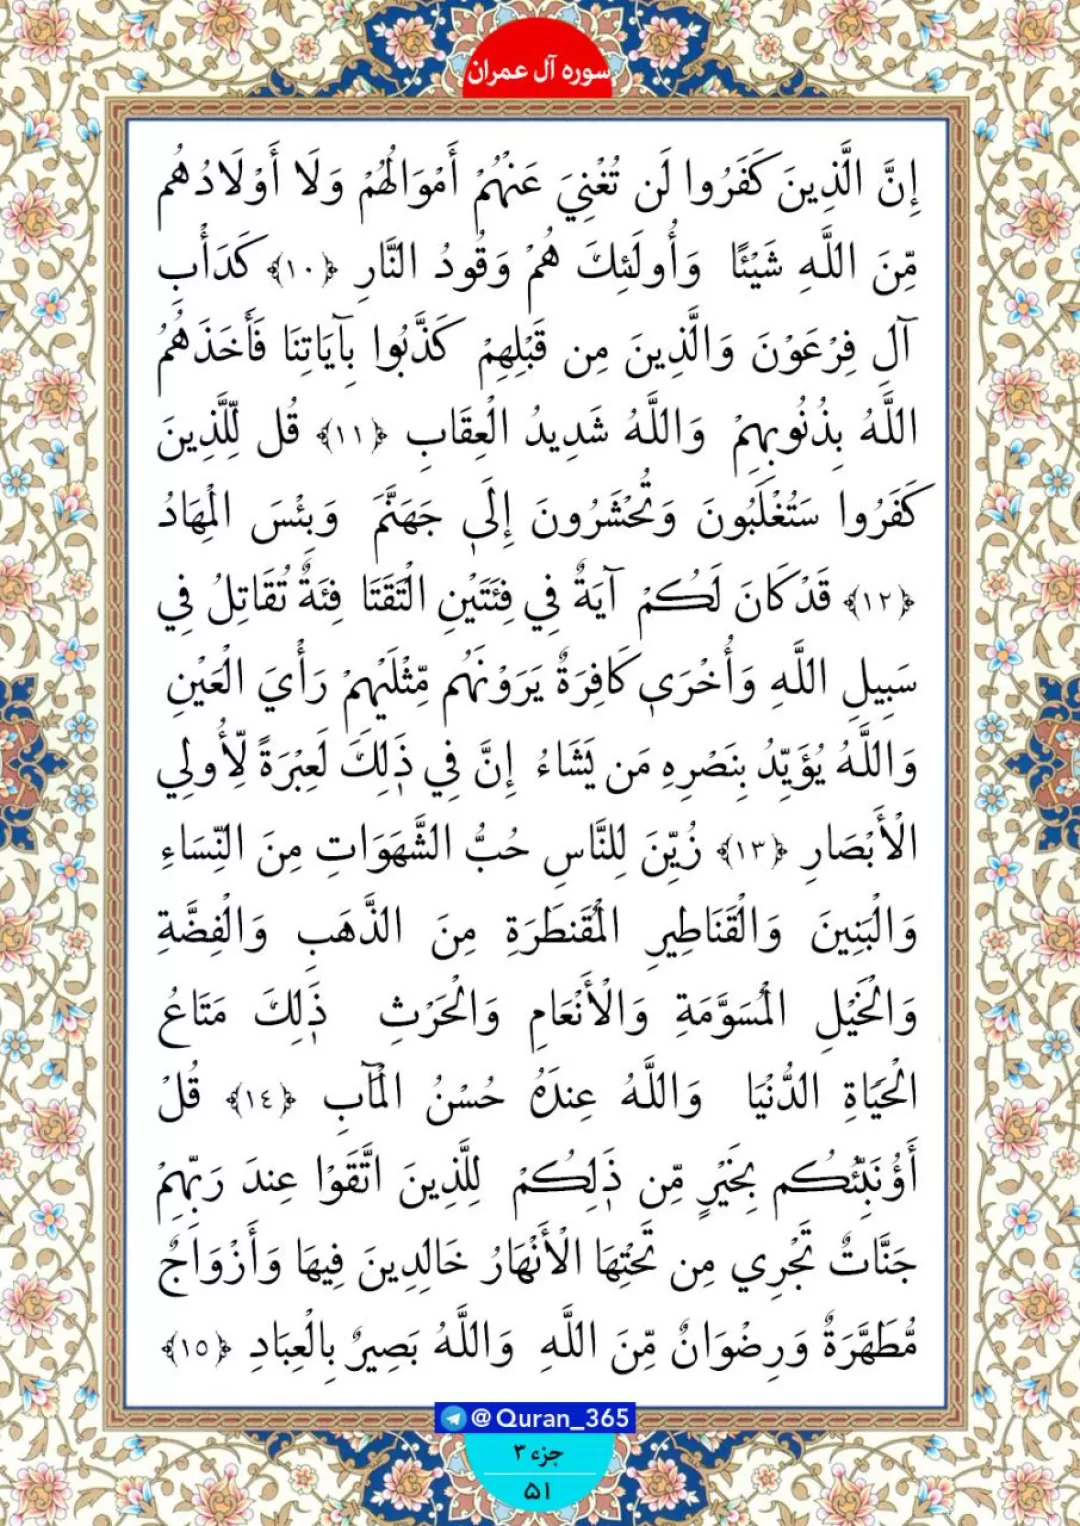 سوره آل عمران
إِنَّ الَّذِينَ كَفَرُوا لَن تُغْنِيَ عَنْهُمْ أَمْوَالُهُمْ وَلَا أَوْلَادُهُم
مِّنَ اللَّهِ شَيْئًا وَأُولَٰئِكَ هُمْ وَقُودُ النَّارِ ﴿١٠﴾ كَدَأْبِ
آلِ فِرْعَوْنَ وَالَّذِينَ مِن قَبْلِهِمْ كَذَّبُوا بِآيَاتِنَا فَأَخَذَهُمُ
اللَّهُ بِذُنُوبِهِمْ وَاللَّهُ شَدِيدُ الْعِقَابِ ﴿١١﴾ قُل لِّلَّذِينَ
كَفَرُوا سَتُغْلَبُونَ وَتُحْشَرُونَ إِلَىٰ جَهَنَّمَ وَبِئْسَ الْمِهَادُ
﴿١٢﴾ قَدْ كَانَ لَكُمْ آيَةٌ فِي فِئَتَيْنِ الْتَقَتَا فِئَةٌ تُقَاتِلُ فِي
سَبِيلِ اللَّهِ وَأُخْرَىٰ كَافِرَةٌ يَرَوْنَهُم مِّثْلَيْهِمْ رَأْيَ الْعَيْنِ
وَاللَّهُ يُؤَيِّدُ بِنَصْرِهِ مَن يَشَاءُ إِنَّ فِي ذَٰلِكَ لَعِبْرَةً لِّأُولِي
الْأَبْصَارِ ﴿١٣﴾ زُيِّنَ لِلنَّاسِ حُبُّ الشَّهَوَاتِ مِنَ النِّسَاءِ
وَالْبَنِينَ وَالْقَنَاطِيرِ الْمُقَنطَرَةِ مِنَ الذَّهَبِ وَالْفِضَّةِ
وَالْخَيْلِ الْمُسَوَّمَةِ وَالْأَنْعَامِ وَالْحَرْثِ ذَٰلِكَ مَتَاعُ
الْحَيَاةِ الدُّنْيَا وَاللَّهُ عِندَهُ حُسْنُ الْمَآبِ ﴿١٤﴾ قُلْ
أَؤُنَبِّئُكُم بِخَيْرٍ مِّن ذَٰلِكُمْ لِلَّذِينَ اتَّقَوْا عِندَ رَبِّهِمْ
جَنَّاتٌ تَجْرِي مِن تَحْتِهَا الْأَنْهَارُ خَالِدِينَ فِيهَا وَأَزْوَاجٌ
مُّطَهَّرَةٌ وَرِضْوَانٌ مِّنَ اللَّهِ وَاللَّهُ بَصِيرٌ بِالْعِبَادِ ﴿١٥﴾
@Quran_365
جزء ۳
۵۱